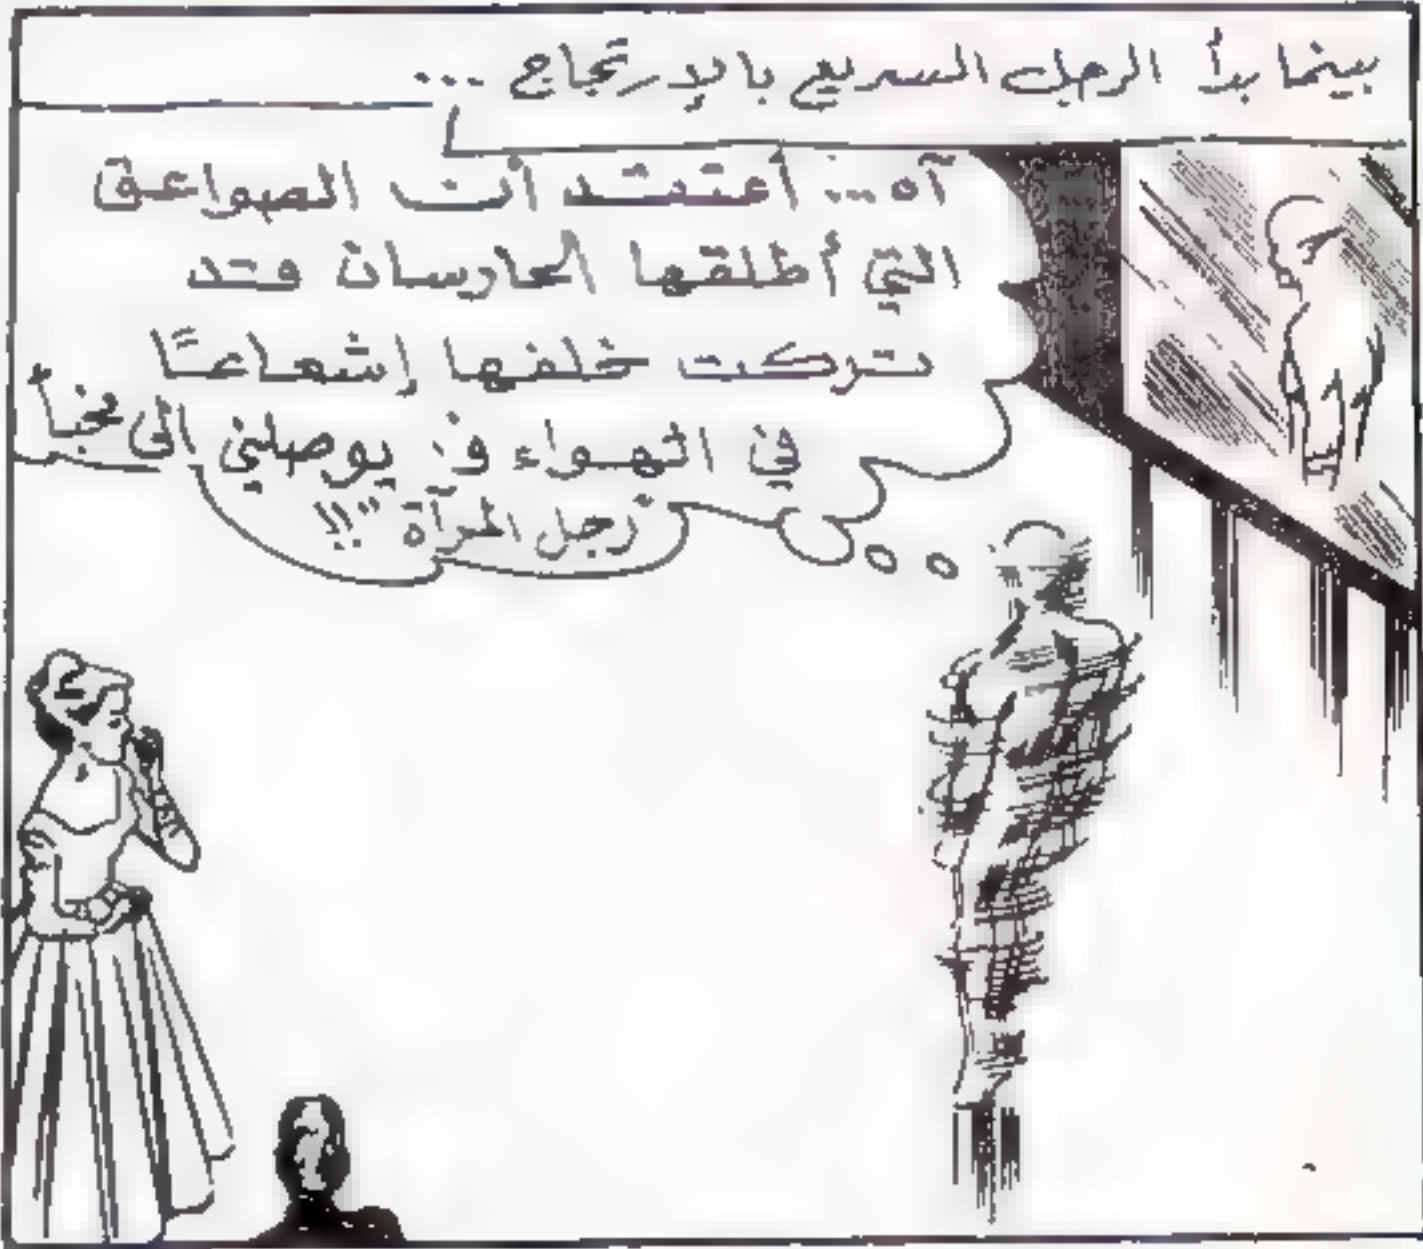 بينما بدأ الرجل السريع بالإرتجاج ...
آه ... أعتقد أن الصواعق
التي أطلقها الحارسان قد
تركت خلفها إشعاعًا
في الهواء قد يوصلني إلى مخبأ
"رجل المرآة" !!